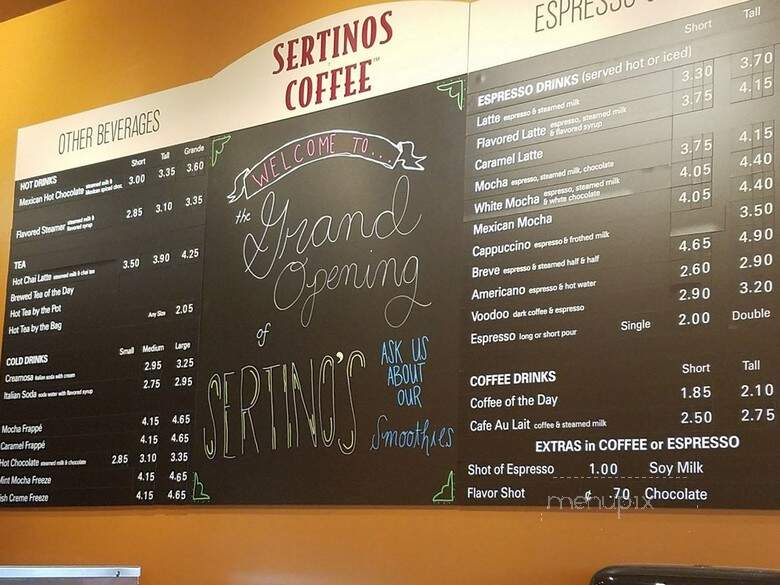 SERTINOS
COFFEE™
OTHER BEVERAGES
Short Tall Grande
HOT DRINKS
Mexican Hot Chocolate steamed milk & Mexican spiced choc. 3.00 3.35 3.60
Flavored Steamer steamed milk & flavored syrup 2.85 3.10 3.35
TEA
Hot Chai Latte steamed milk & chai tea 3.50 3.90 4.25
Brewed Tea of the Day
Hot Tea by the Pot
Hot Tea by the Bag Any Size 2.05
COLD DRINKS Small Medium Large
Creamosa italian soda with cream 2.95 3.25
Italian Soda soda water with flavored syrup 2.75 2.95
Mocha Frappé 4.15 4.65
Caramel Frappé 4.15 4.65
Hot Chocolate steamed milk & chocolate 2.85 3.10 3.35
Mint Mocha Freeze 4.15 4.65
ish Creme Freeze 4.15 4.65
WELCOME TO...
the
Grand
Opening
of
SERTINO'S
ASK US
ABOUT
OUR
Smoothies
ESPRESSO
Short Tall
ESPRESSO DRINKS (served hot or iced)
Latte espresso & steamed milk 3.30 3.70
Flavored Latte espresso, steamed milk & flavored syrup 3.75 4.15
Caramel Latte
Mocha espresso, steamed milk, chocolate 3.75 4.15
White Mocha espresso, steamed milk & white chocolate 4.05 4.40
Mexican Mocha 4.05 4.40
Cappuccino espresso & frothed milk 3.50
Breve espresso & steamed half & half 4.65 4.90
Americano espresso & hot water 2.60 2.90
Voodoo dark coffee & espresso 2.90 3.20
Espresso long or short pour Single 2.00 Double
COFFEE DRINKS Short Tall
Coffee of the Day 1.85 2.10
Cafe Au Lait coffee & steamed milk 2.50 2.75
EXTRAS in COFFEE or ESPRESSO
Shot of Espresso 1.00 Soy Milk
Flavor Shot .70 Chocolate
menupix